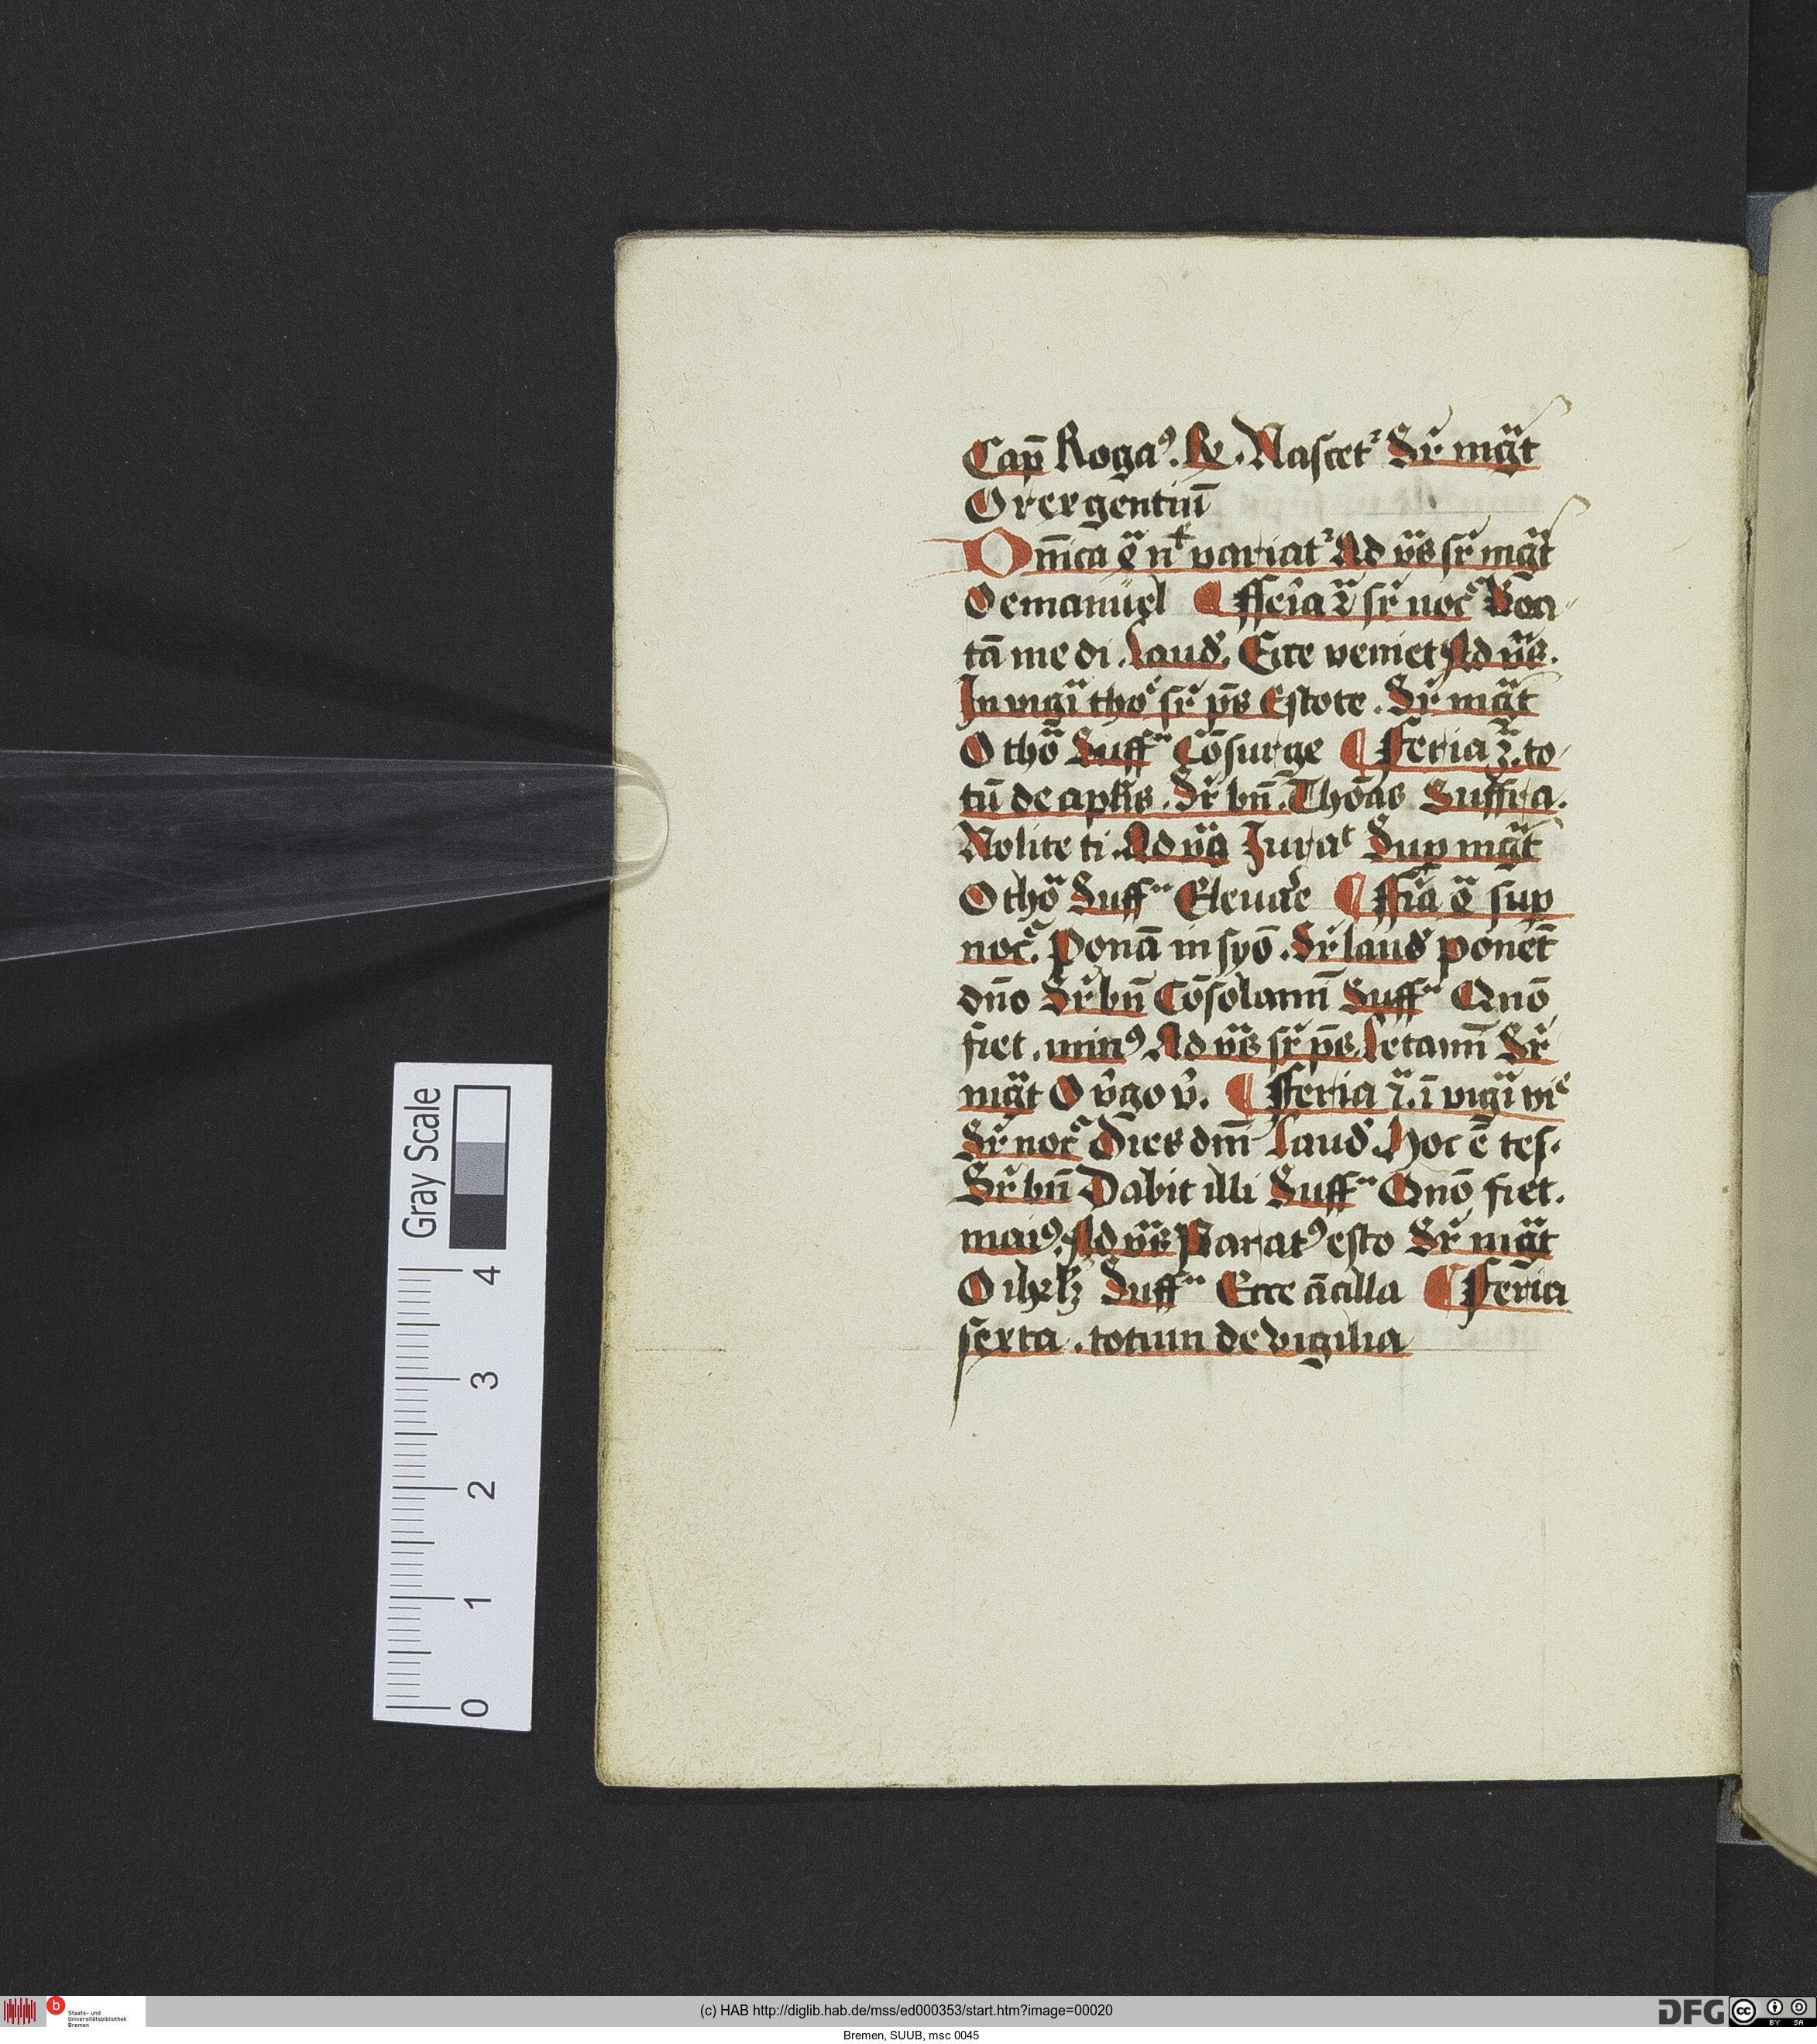 Cap̄ Rogaꝰ. ℟. Nascet᷑ Sr̄ mḡt
O rex gentiū
Dn̄ica q̈ nͭ variat᷑ Ad v̈s sr̄ mḡt
O emanuel ¶ ffer̄ia 2 sr̄ noc̄ Bon
tā me di. Laud̄. Ecce veniet Ad v̈s.
In vigi᷑ tho᷑ sr̄ p̄s Estote. Sr̄ mḡt
O thō Suffᵃ Cōsurge ¶ Feria 3. to
tū de aplis̄. Sr̄ bn̄. Thōas Suffra.
Nolite ti. Ad v̈s Juraᵗ Sup mḡt
O thō Suffᵃ Eleuar̄e ¶ ffiā q̈ sup
noc̄. Ponā in syō. Sr̄ laud̄ ponet̄
dn̄o Sr̄ bn̄ Cōsolamī Suffᵃ Qn̄o
fiet. minꝰ Ad v̈s sr̄ p̄s. Letamī Sr̄
mḡt O v̄go v̄. ¶ Feria ī vigi᷑
Sr̄ noc̄ Dies dn̄i Laud̄. Hoc ē tes.
Sr̄ bn̄ Dabit illi Suffᵃ Qn̄o fiet.
maiꝰ. Ad v̈s Paratꝰ esto Sr̄ mḡt
O Suffᵃ Ecce ācilla ¶ Feria
sexta. totum de vigilia
Gray Scale
4
3
2
1
0
b
Staats- und
Universitätsbibliothek
Bremen
(c) HAB http://diglib.hab.de/mss/ed000353/start.htm?image=00020
DFG
cc
BY SA
Bremen, SUUB, msc 0045